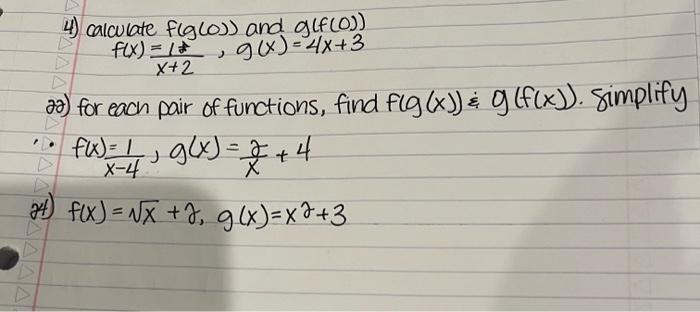 4) calculate f(g(0)) and g(f(0))
f(x) = 1 / x+2 , g(x) = 4x+3
22) for each pair of functions, find f(g(x)) & g(f(x)). Simplify
f(x) = 1 / x-4 , g(x) = 2/x + 4
24) f(x) = √x + 2, g(x) = x²+3